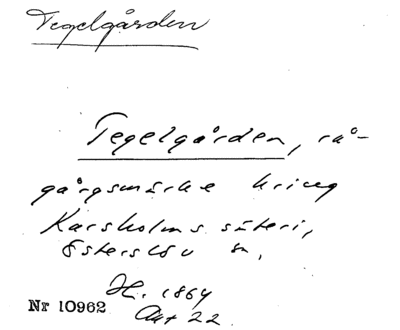 Tegelgården
Tegelgården, rå-
gångsmärke kring
Karsholms säteri,
Österslöv sn,
H. 1864
Nr 10962
Akt 22.